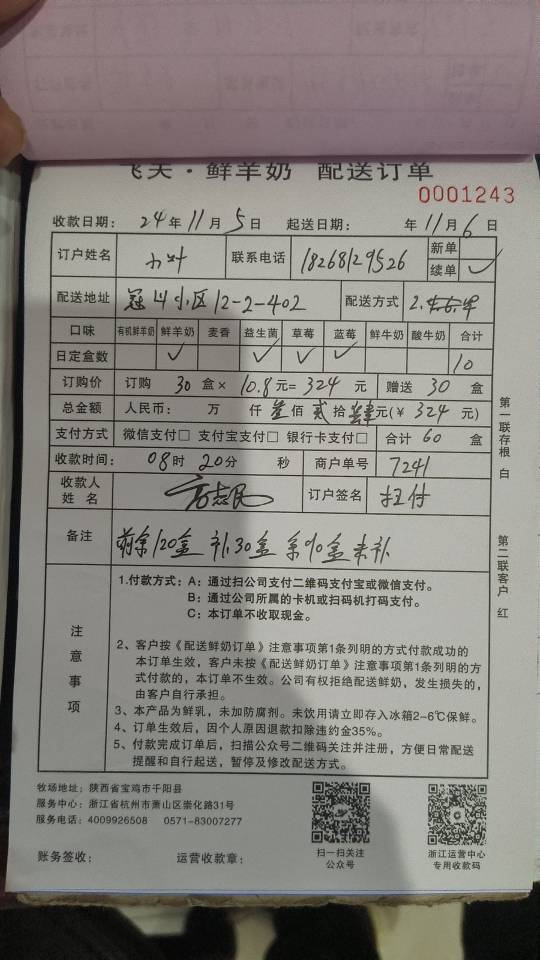 飞天·鲜羊奶 配送订单
0001243
收款日期: 24年11月5日 起送日期: 年11月6日
订户姓名 小叶 联系电话 18268129526 新单
续单 ✓
配送地址 冠山小区12-2-402 配送方式 2.
口味 有机鲜羊奶 鲜羊奶 麦香 益生菌 草莓 蓝莓 鲜牛奶 酸牛奶 合计
日定盒数 ✓ ✓ ✓ ✓ 10
订购价 订购 30 盒× 10.8元= 324 元 赠送 30 盒
总金额 人民币: 万 仟 叁佰 贰拾 肆元(¥ 324 元)
支付方式 微信支付□ 支付宝支付□ 银行卡支付□ 合计 60 盒
收款时间: 08时 20分 秒 商户单号 7241
收款人
姓 名 订户签名 扫付
备注 前余120盒 补30盒 余90盒未补
注意事项
1.付款方式: A: 通过扫公司支付二维码支付宝或微信支付。
B: 通过公司所属的卡机或扫码机打码支付。
C: 本订单不收取现金。
2、客户按《配送鲜奶订单》注意事项第1条列明的方式付款成功的
本订单生效，客户未按《配送鲜奶订单》注意事项第1条列明的方
式付款的，本订单不生效。公司有权拒绝配送鲜奶，发生损失的，
由客户自行承担。
3、本产品为鲜乳，未加防腐剂。未饮用请立即存入冰箱2-6℃保鲜。
4、订单生效后，因个人原因退款扣除违约金35%。
5、付款完成订单后，扫描公众号二维码关注并注册，方便日常配送
提醒和自行起送，暂停及修改配送方式。
第一联存根 白
第二联客户 红
牧场地址: 陕西省宝鸡市千阳县
服务中心: 浙江省杭州市萧山区崇化路31号
服务电话: 4009926508 0571-83007277
扫一扫关注
公众号
浙江运营中心
专用收款码
账务签收: 运营收款章: